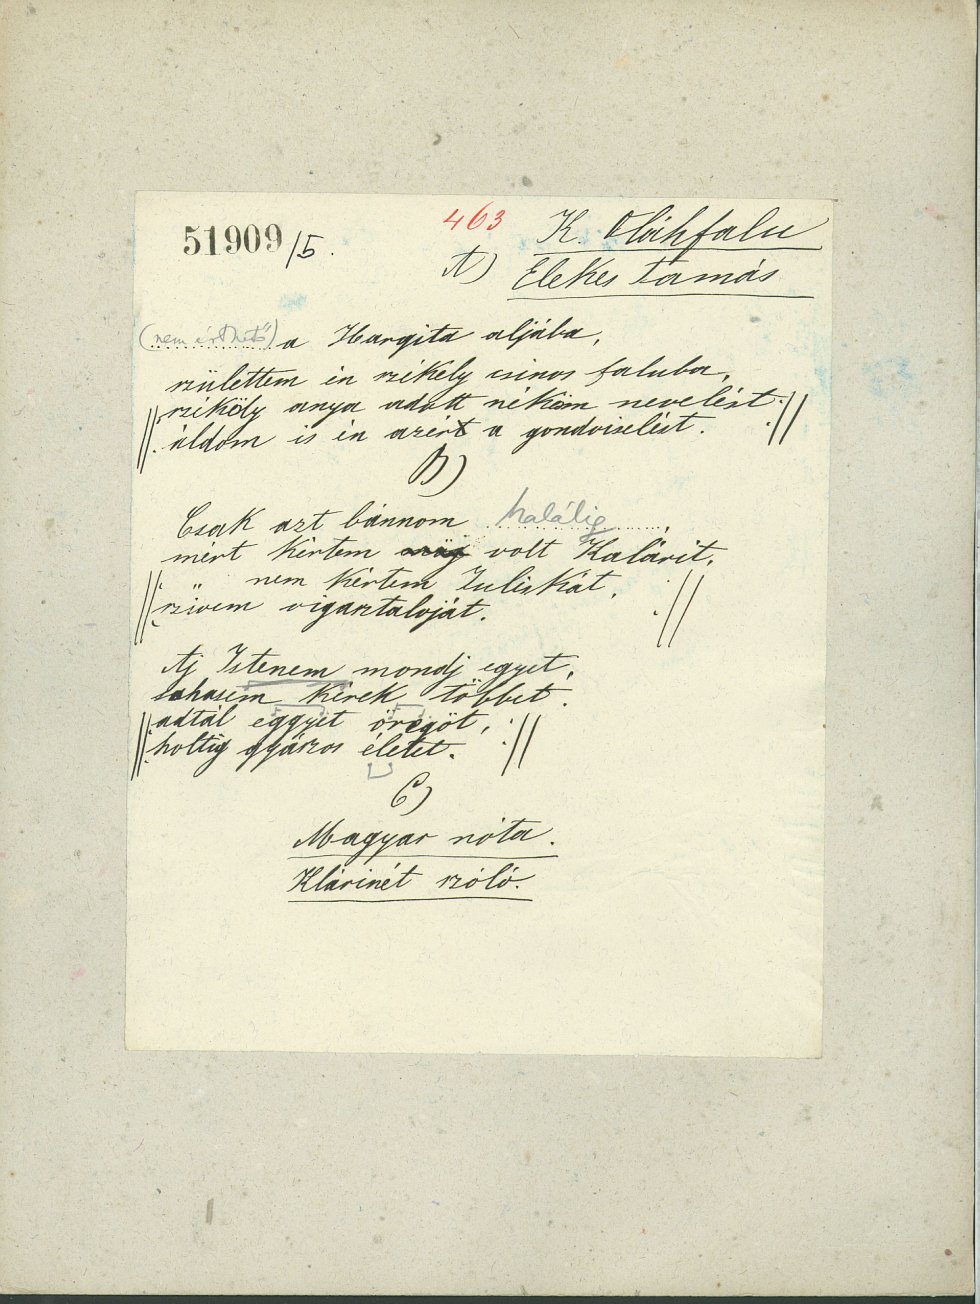 51909/5.
463 K. Oláhfalu
A) Elekes Tamás
(nem érthető) a Hargita aljába,
születtem én székely csinos faluba,
||: széköly anya adott néköm nevelést :||
áldom is én azért a gondviselést.
B)
Csak azt bánnom halálig,
mért kértem volt Kalárit,
||: „ nem kértem Juliskát, :||
szivem vigasztalóját.
Aj Istenem mondj egyet,
sohasem kérek többet.
||: adtál eggyet öregöt, :||
holtig gyászos életet.
C)
Magyar nóta.
Klárinét szóló.